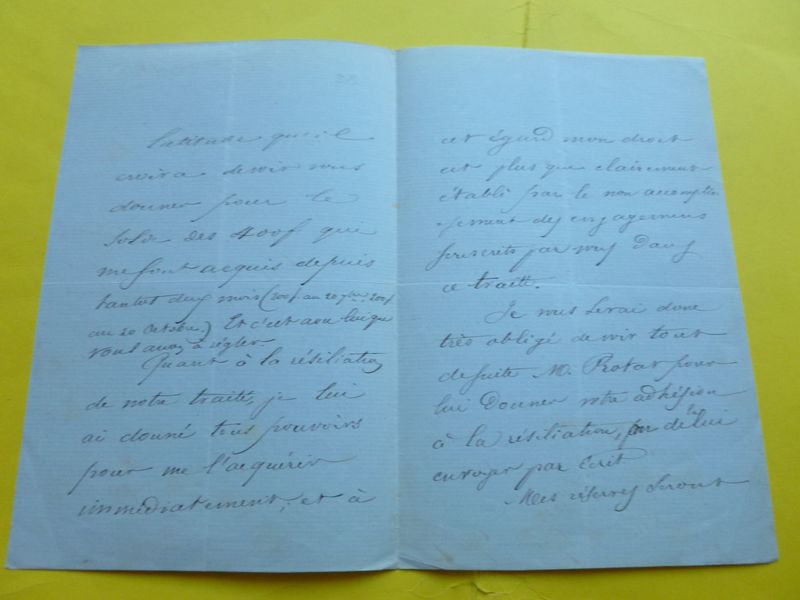 latitude qu'il
croira devoir vous
donner pour le
solde des 400f que
me sont acquis depuis
tantot deux mois (200f au 20 7bre 200f
au 20 Octobre.) Et c'est avec lui que
vous avez à régler
Quant à la résiliation
de notre traité, je lui
ai donné tous pouvoirs
pour me l'acquérir
immédiatement, et à
cet égard mon droit
est plus que clairement
établi par le non accomplis-
sement des engagemens
souscrits par vous dans
ce traité.
Je vous serai donc
très obligé de voir tout
de suite M. Rotat pour
lui donner votre adhésion
à la résiliation, ou de la lui
envoyer par écrit
Mes réserves seront